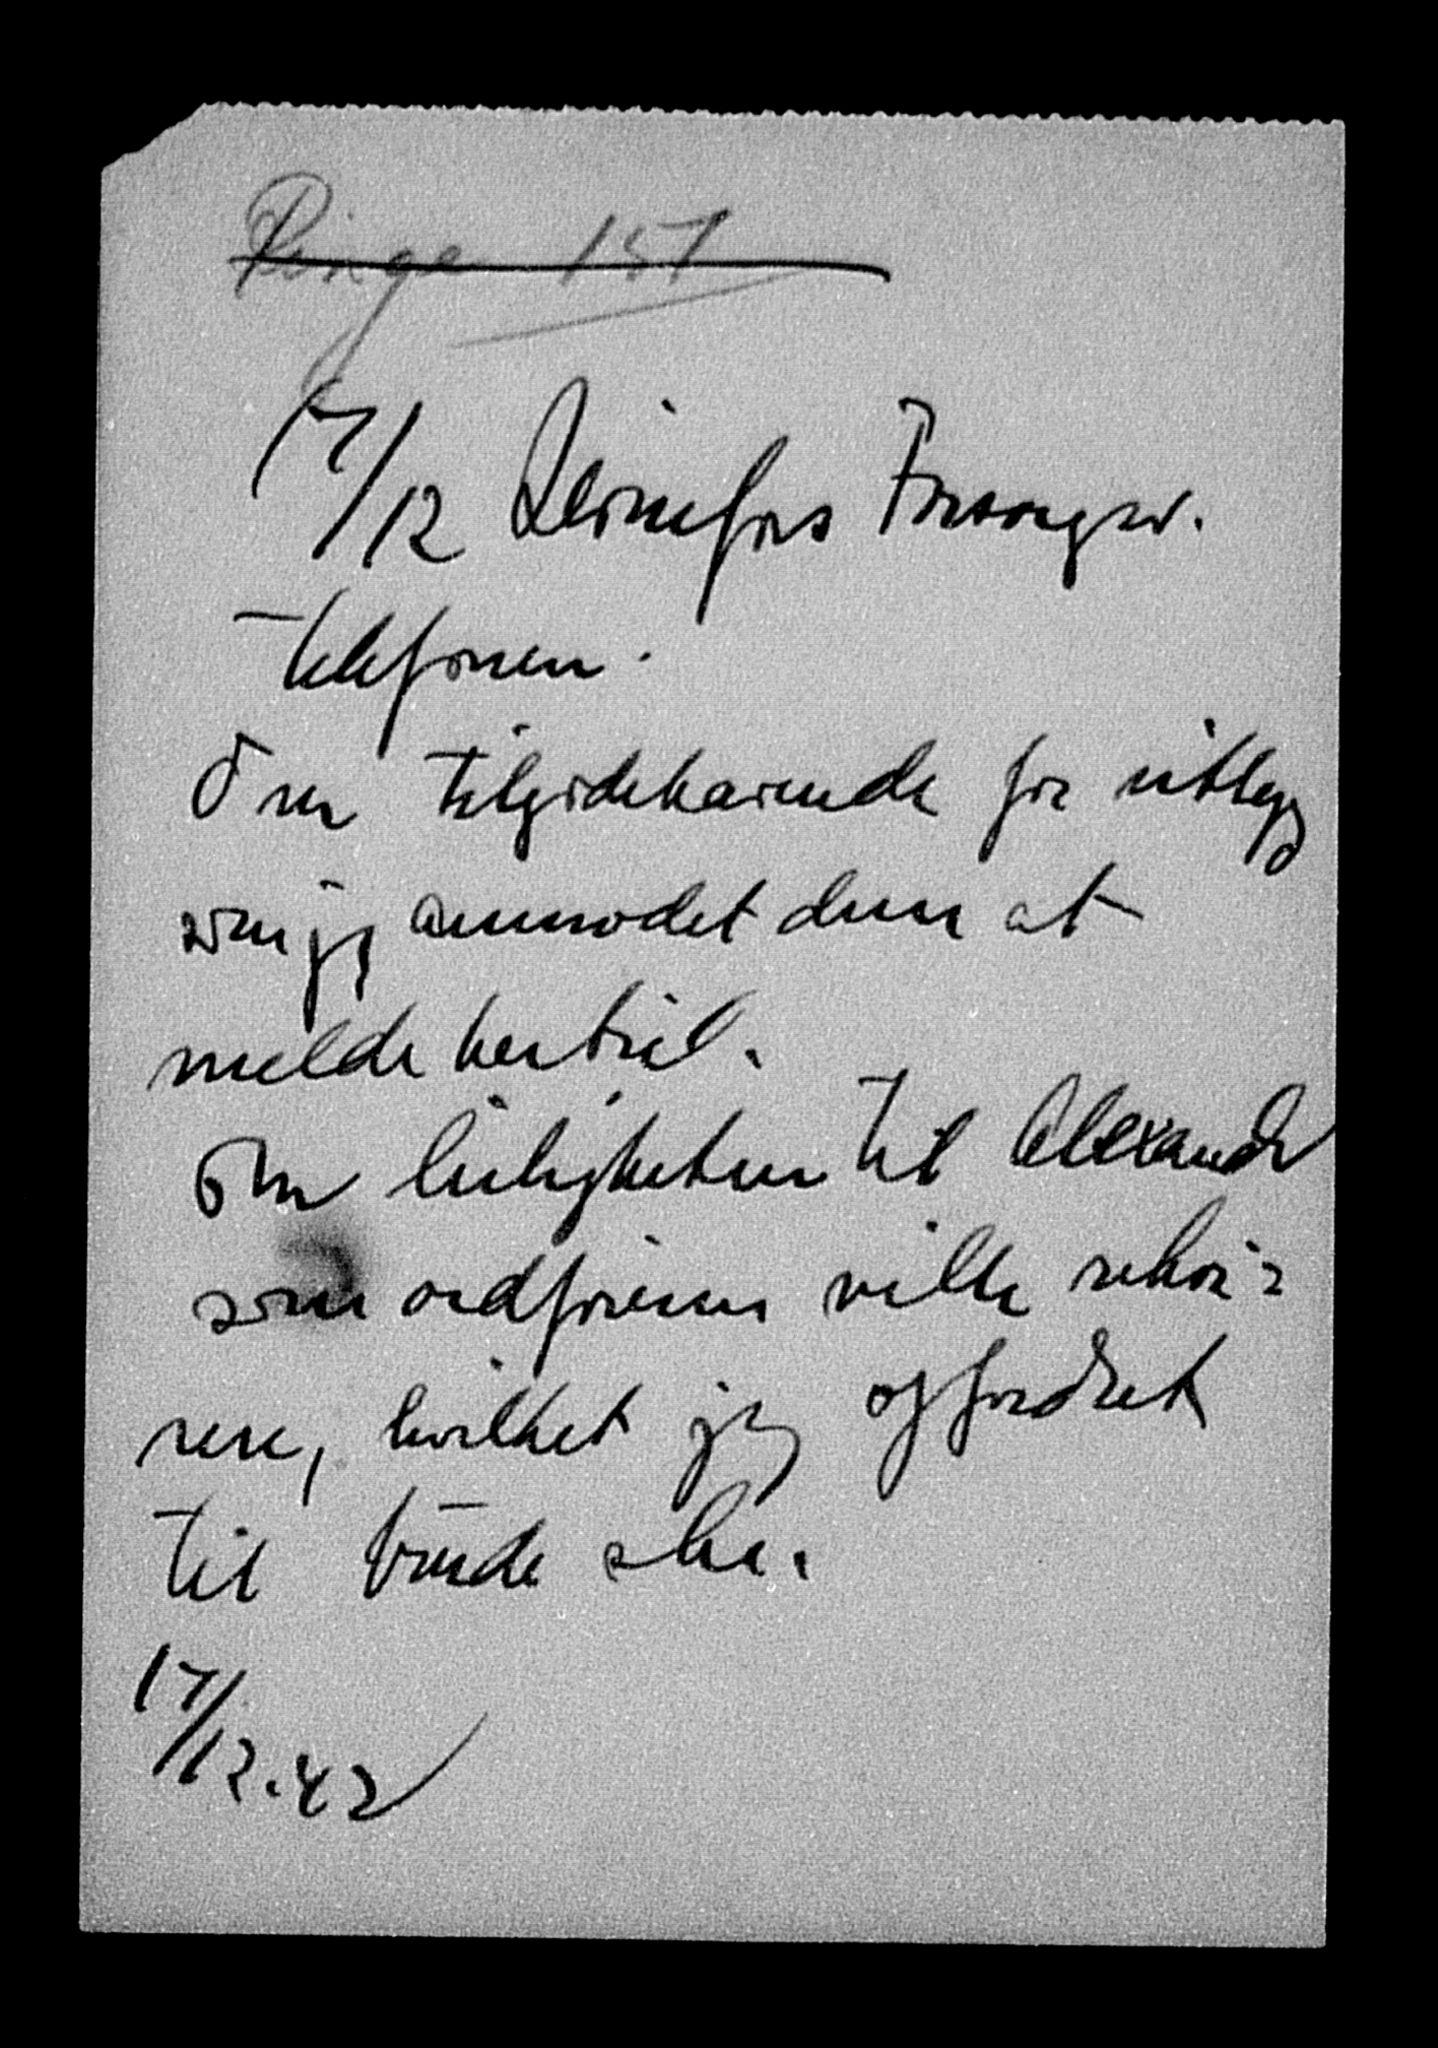 Ringe 151
17/12 Forsorgsv.
telefonen.
Om tilgodehavende for utlegg
som jeg anmodet dem at
melde hertil.
Om leiligheten til Alexander
som ordføreren ville rekvi=
rere, hvilket jeg opfordret
til burde skje.
17/12.42